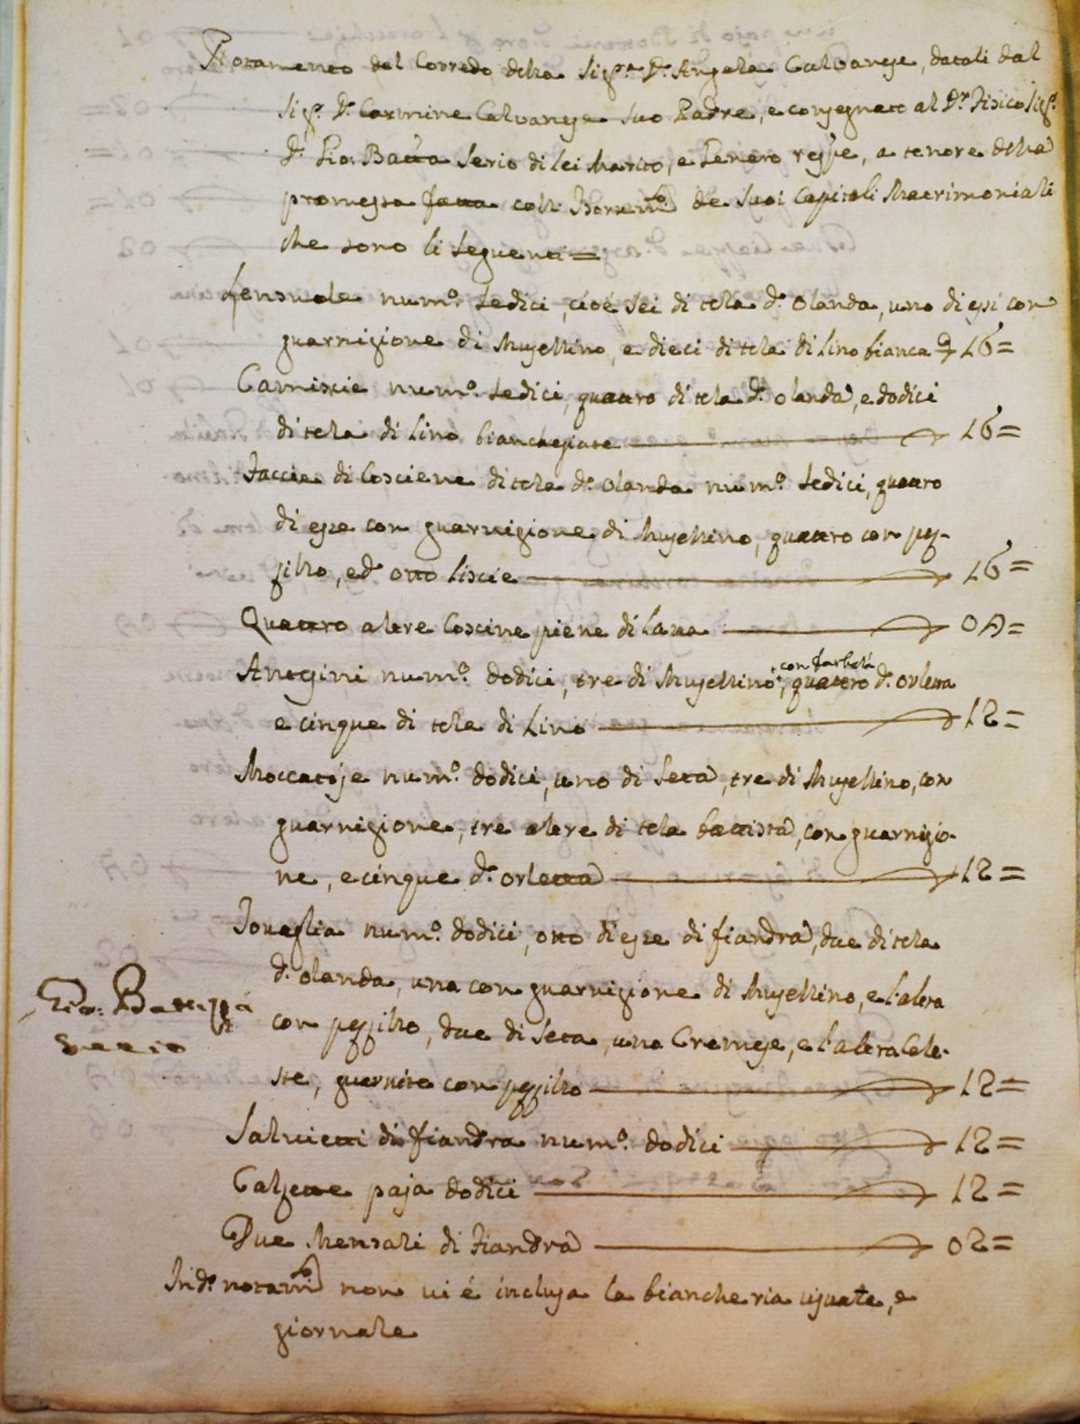 Notamento del Corredo della Sig.ª D.ª Angela Calvanese, datoli dal
Sig.r D. Carmine Calvanese suo Padre, e consegnato al D.r Fisico Sig.r
D. Gio: Batta Serio di lei Marito, e Genero respe, a tenore della
promessa fatta coll' de' suoi Capitoli Matrimoniali
che sono li seguenti =
Lensuole num.º sedici, cioè sei di tela d'Olanda, uno di essi con
guarnizione di Musellino, e dieci di tela di lino bianca 16=
Camiscie num.º sedici, quattro di tela d'Olanda, e dodici
di tela di lino bianchegiate 16=
Faccie di Coscine di tela d'Olanda num.º sedici, quattro
di esse con guarnizione di Musellino, quattro con pez-
zillo, ed otto liscie 16=
Quattro altre Coscine piene di lana 04=
Antesini num.º dodici, tre di Musellino, con farbalà quattro d'orletta
e cinque di tela di Lino 12=
Moccatoje num.º dodici, uno di seta, tre di Musellino, con
guarnizione, tre altre di tela battista, con guarnizio-
ne, e cinque d'orletta 12=
Tovaglia num.º dodici, otto di esse di fiandra, due di tela
d'olanda, una con guarnizione di Musellino, e l'altra
con pezzillo, due di seta, una Cremese, e l'altra Cele-
ste, guarnite con pezzillo 12=
Gio: Battista
Serio
Salvietti di fiandra num.º dodici 12=
Calzette paja dodici 12=
Due Mensali di Fiandra 02=
In d.º notam.to non vi è inclusa la biancheria usuale, e
giornale